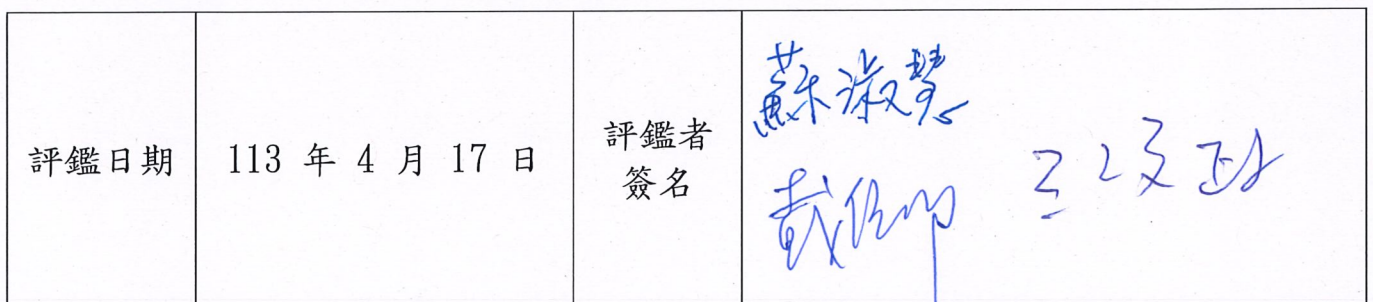 評鑑日期
113 年 4 月 17 日
評鑑者
簽名
蘇淑慧